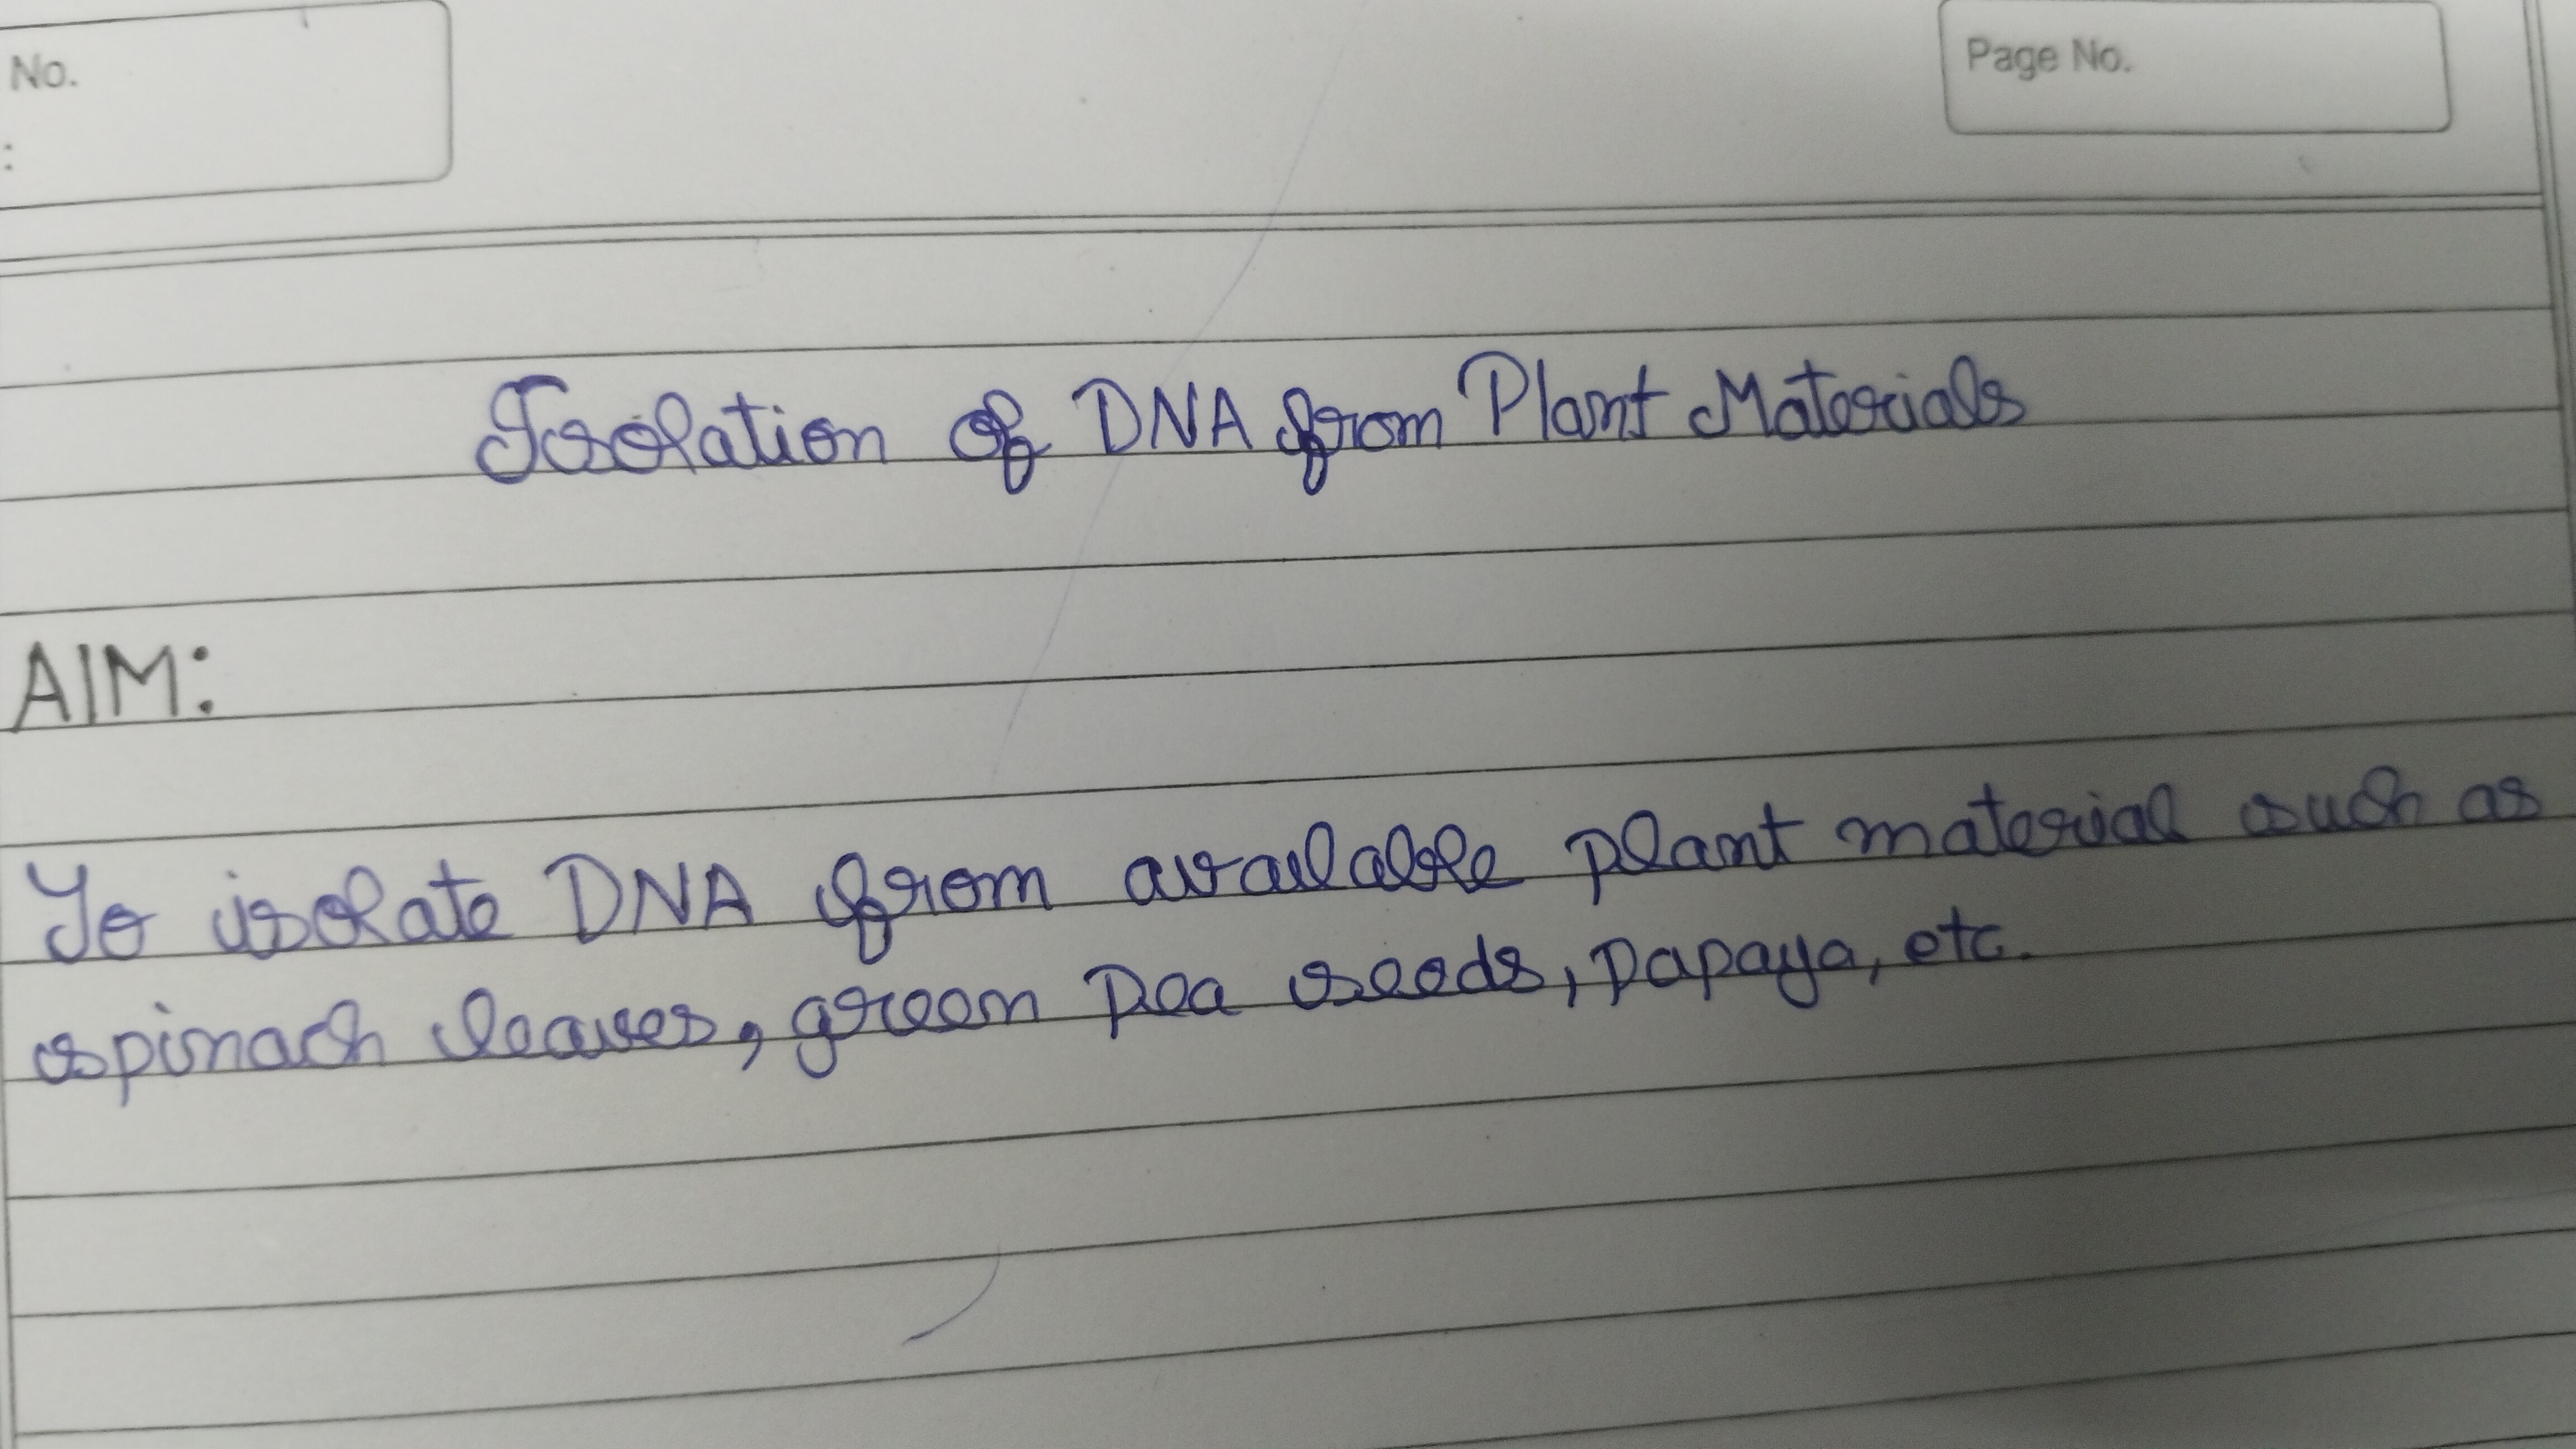 No.
Page No.
:
Isolation of DNA from Plant Materials
AIM:
To isolate DNA from available plant material such as
spinach leaves, green pea seeds, papaya, etc.